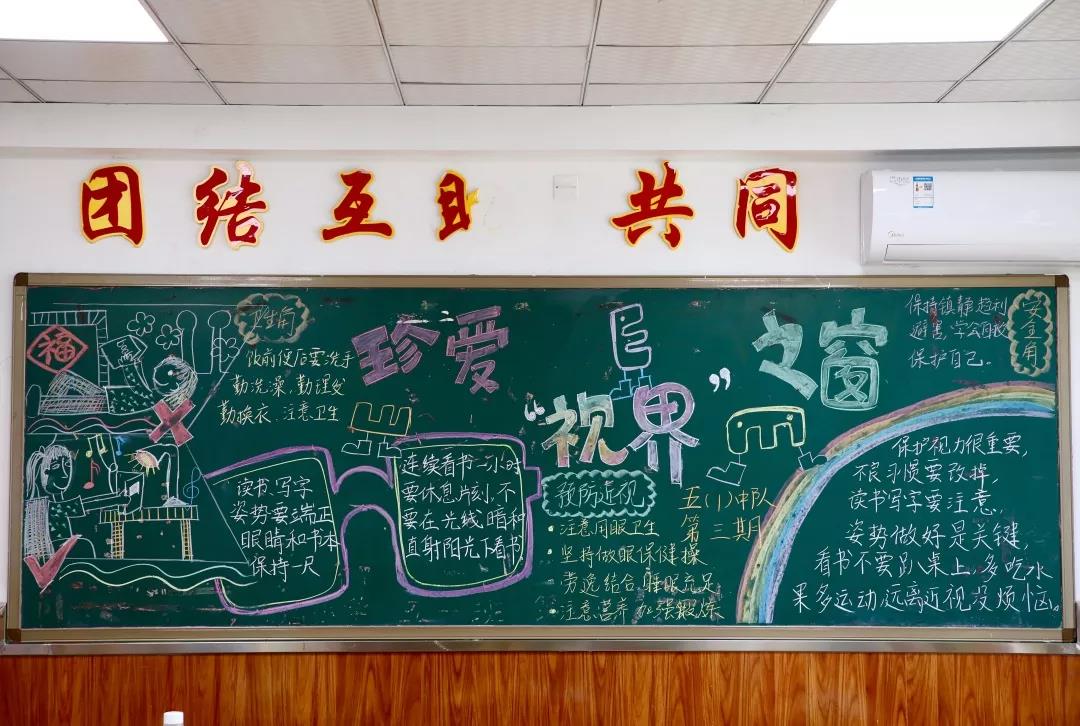 团结互助 共同
福
卫生角
饭前便后要洗手
勤洗澡，勤理发
勤换衣，注意卫生
珍爱
“视界”
之窗
E
读书写字
姿势要端正
眼睛和书本
保持一尺
连续看书一小时
要休息片刻，不
要在光线暗和
直射阳光下看书
预防近视
注意用眼卫生
坚持做眼保健操
劳逸结合 睡眠充足
注意营养 加强锻炼
五(1)中队
第三期
安全角
保持镇静趋利
避害，学会自救
保护自己。
保护视力很重要，
不良习惯要改掉，
读书写字要注意，
姿势做好是关键，
看书不要趴桌上，多吃水
果多运动，远离近视没烦恼。